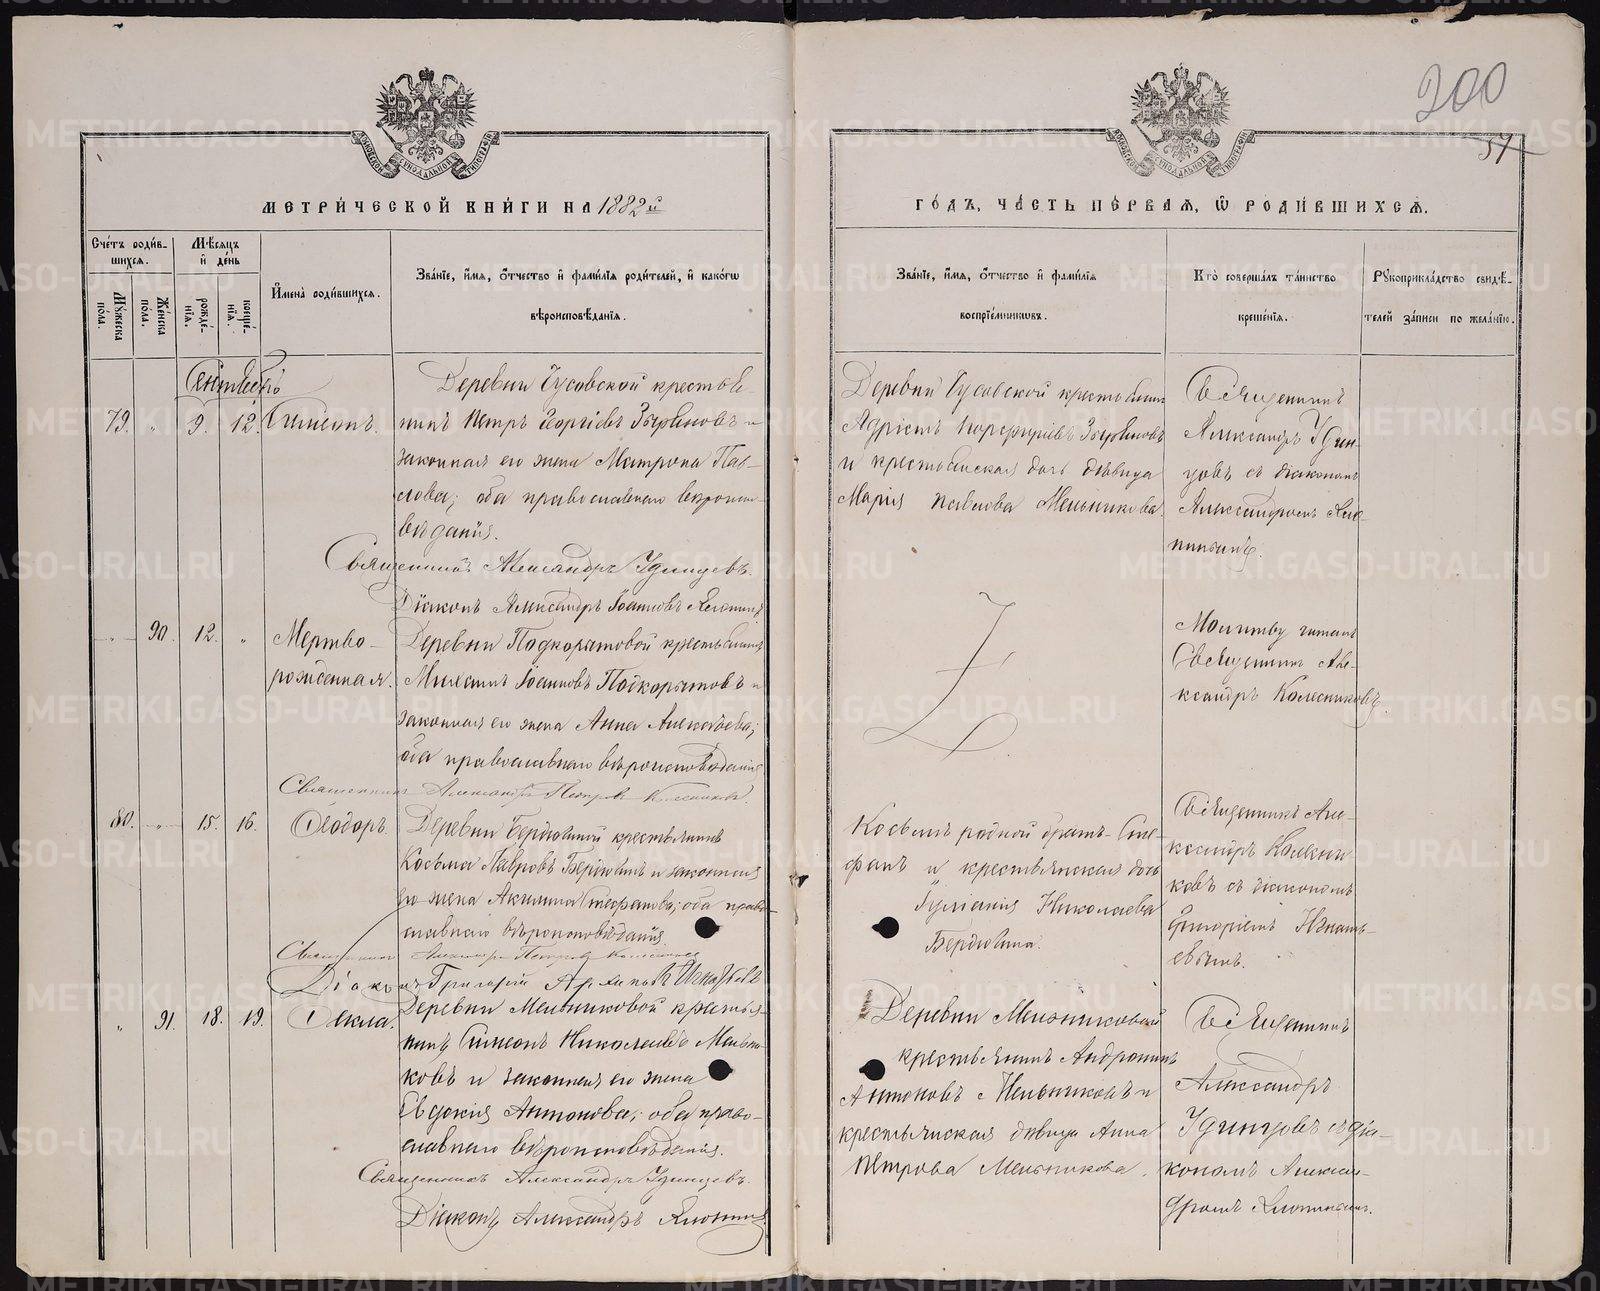 200
57
МЕТРИ́ЧЕСКОЙ КНИ́ГИ НА 1882й
ГО́ДЪ, ЧА́СТЬ ПЕ́РВАЯ, Ѡ РОДИ́ВШИХСЯ.
Сче́тъ роди́в-
шихся.
Мѣ́сяцъ
и де́нь
Му́жеска по́ла.
Же́нска по́ла.
рожде́-
нія.
креще́-
нія.
Имена̀ роди́вшихся.
Зва́ніе, и́мя, о́тчество и фами́лія роди́телей, и како́гѡ
вѣроисповѣ́данія.
Зва́ніе, и́мя, о́тчество и фами́лія
воспріе́мниковъ.
Кто̀ соверша́лъ та́инство
креще́нія.
Рꙋкоприкла́дство свидѣ́-
телей за́писи по жела́нію.
Сентябрь
79. " 9. 12. Симеонъ.
Деревни Чусовской крестья-
нинъ Петръ Георгіевъ Зыряновъ и
законная его жена Матрона Пав-
лова; оба православнаго вѣроиспо-
вѣданія.
Священникъ Александръ Удинцевъ.
Діаконъ Александръ Іоанновъ
Деревни Чусовской крестьянинъ
Порфиріевъ Зыряновъ
и крестьянская дочь дѣвица
Марія Павлова Мельникова
Священникъ
Александръ Удин-
цевъ съ діакономъ
Александромъ
" 90. 12. "
Мертво-
рожденная.
Деревни Подкорытовой крестьянинъ
Михаилъ Іоанновъ Подкорытовъ и
законная его жена Анна Алексѣева;
оба православнаго вѣроисповѣданія
Священникъ Александръ Петровъ Колесниковъ.
Молитву читалъ
Священникъ Але-
ксандръ Колесниковъ.
80. " 15. 16. Ѳеодоръ.
Деревни крестьянинъ
Косьма Лавровъ и законная
его жена Акилина Стефанова; оба право-
славнаго вѣроисповѣданія.
Священникъ Александръ Петровъ Колесниковъ
Діаконъ Григорій Архиповъ Игнатьевъ
Косьмы родной братъ Сте-
фанъ и крестьянская дочь
Іуліанія Николаева
Священникъ Але-
ксандръ Колесни-
ковъ съ діакономъ
Григоріемъ Игнать-
евымъ.
" 91. 18. 19. Ѳекла.
Деревни Мельниковой крестья-
нинъ Симеонъ Николаевъ Мельни-
ковъ и законная его жена
Евдокія Антонова; оба право-
славнаго вѣроисповѣданія.
Священникъ Александръ Удинцевъ.
Діаконъ Александръ
Деревни Мельниковой
крестьянинъ Андроникъ
Антоновъ Мельниковъ и
крестьянская дѣвица Анна
Петрова Мельникова.
Священникъ
Александръ
Удинцевъ съ діа-
кономъ Алексан-
дромъ
METRIKI.GASO-URAL.RU